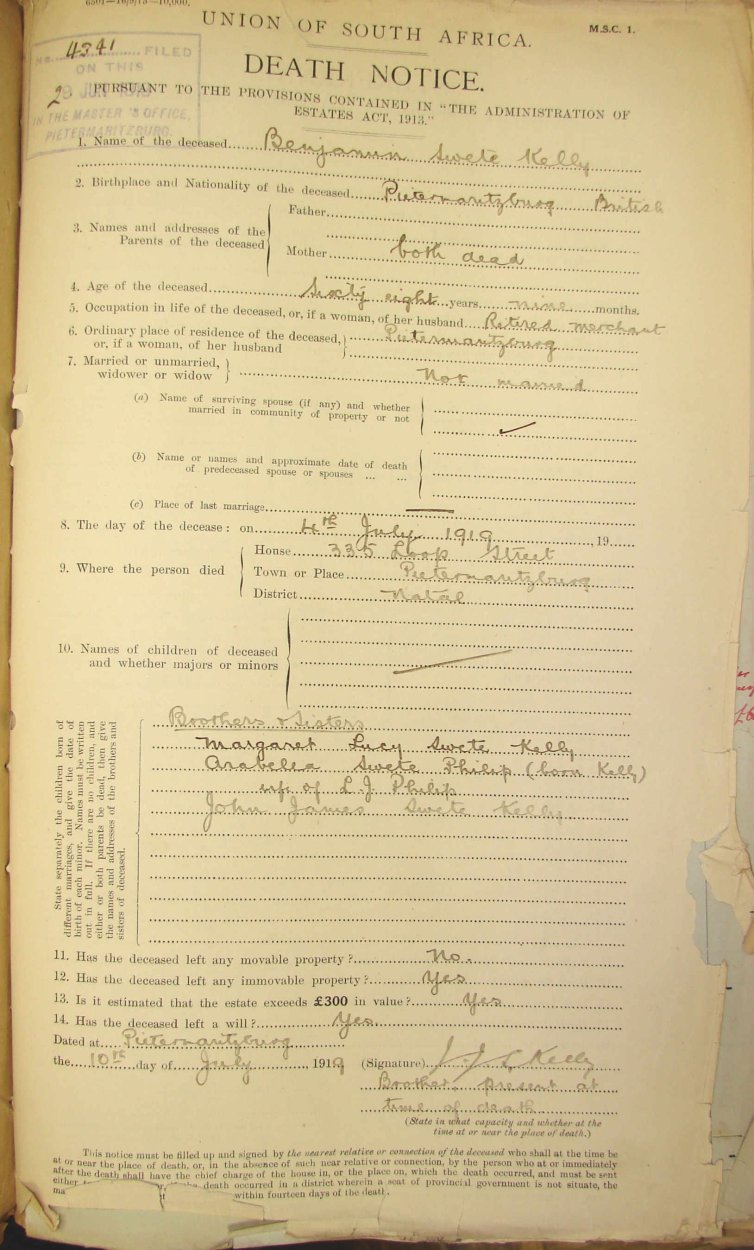 6501—16/9/15—10,000.
UNION OF SOUTH AFRICA.
M.S.C. 1.
No. 4341 FILED
ON THIS
IN THE MASTER'S OFFICE,
PIETERMARITZBURG.
DEATH NOTICE.
PURSUANT TO THE PROVISIONS CONTAINED IN "THE ADMINISTRATION OF
ESTATES ACT, 1913."
1. Name of the deceased Benjamin Swete Kelly
2. Birthplace and Nationality of the deceased Pietermaritzburg British
3. Names and addresses of the Parents of the deceased
Father
Mother both dead
4. Age of the deceased Sixty eight years nine months.
5. Occupation in life of the deceased, or, if a woman, of her husband Retired merchant
6. Ordinary place of residence of the deceased,
or, if a woman, of her husband Pietermaritzburg
7. Married or unmarried,
widower or widow Not married
(a) Name of surviving spouse (if any) and whether
married in community of property or not
(b) Name or names and approximate date of death
of predeceased spouse or spouses ... ...
(c) Place of last marriage
8. The day of the decease: on 4th July 1919, 19
9. Where the person died
House 335 Loop Street
Town or Place Pietermaritzburg
District Natal
10. Names of children of deceased
and whether majors or minors
State separately the children born of
different marriages, and give the date of
birth of each minor. Names must be written
out in full. If there are no children, and
either or both parents be dead, then give
the names and addresses of the brothers and
sisters of deceased.
Brothers & Sisters
Margaret Lucy Swete Kelly
Arabella Swete Philip (born Kelly)
wife of L.J. Philip
John James Swete Kelly
11. Has the deceased left any movable property? No.
12. Has the deceased left any immovable property? Yes
13. Is it estimated that the estate exceeds £300 in value? Yes
14. Has the deceased left a will? Yes
Dated at Pietermaritzburg
the 10th day of July, 1919 (Signature) J. J. S. Kelly
Brother, present at
time of death
(State in what capacity and whether at the
time at or near the place of death.)
This notice must be filled up and signed by the nearest relative or connection of the deceased who shall at the time be
at or near the place of death, or, in the absence of such near relative or connection, by the person who at or immediately
after the death shall have the chief charge of the house in, or the place on, which the death occurred, and must be sent
either death occurred in a district wherein a seat of provincial government is not situate, the
within fourteen days of the death.